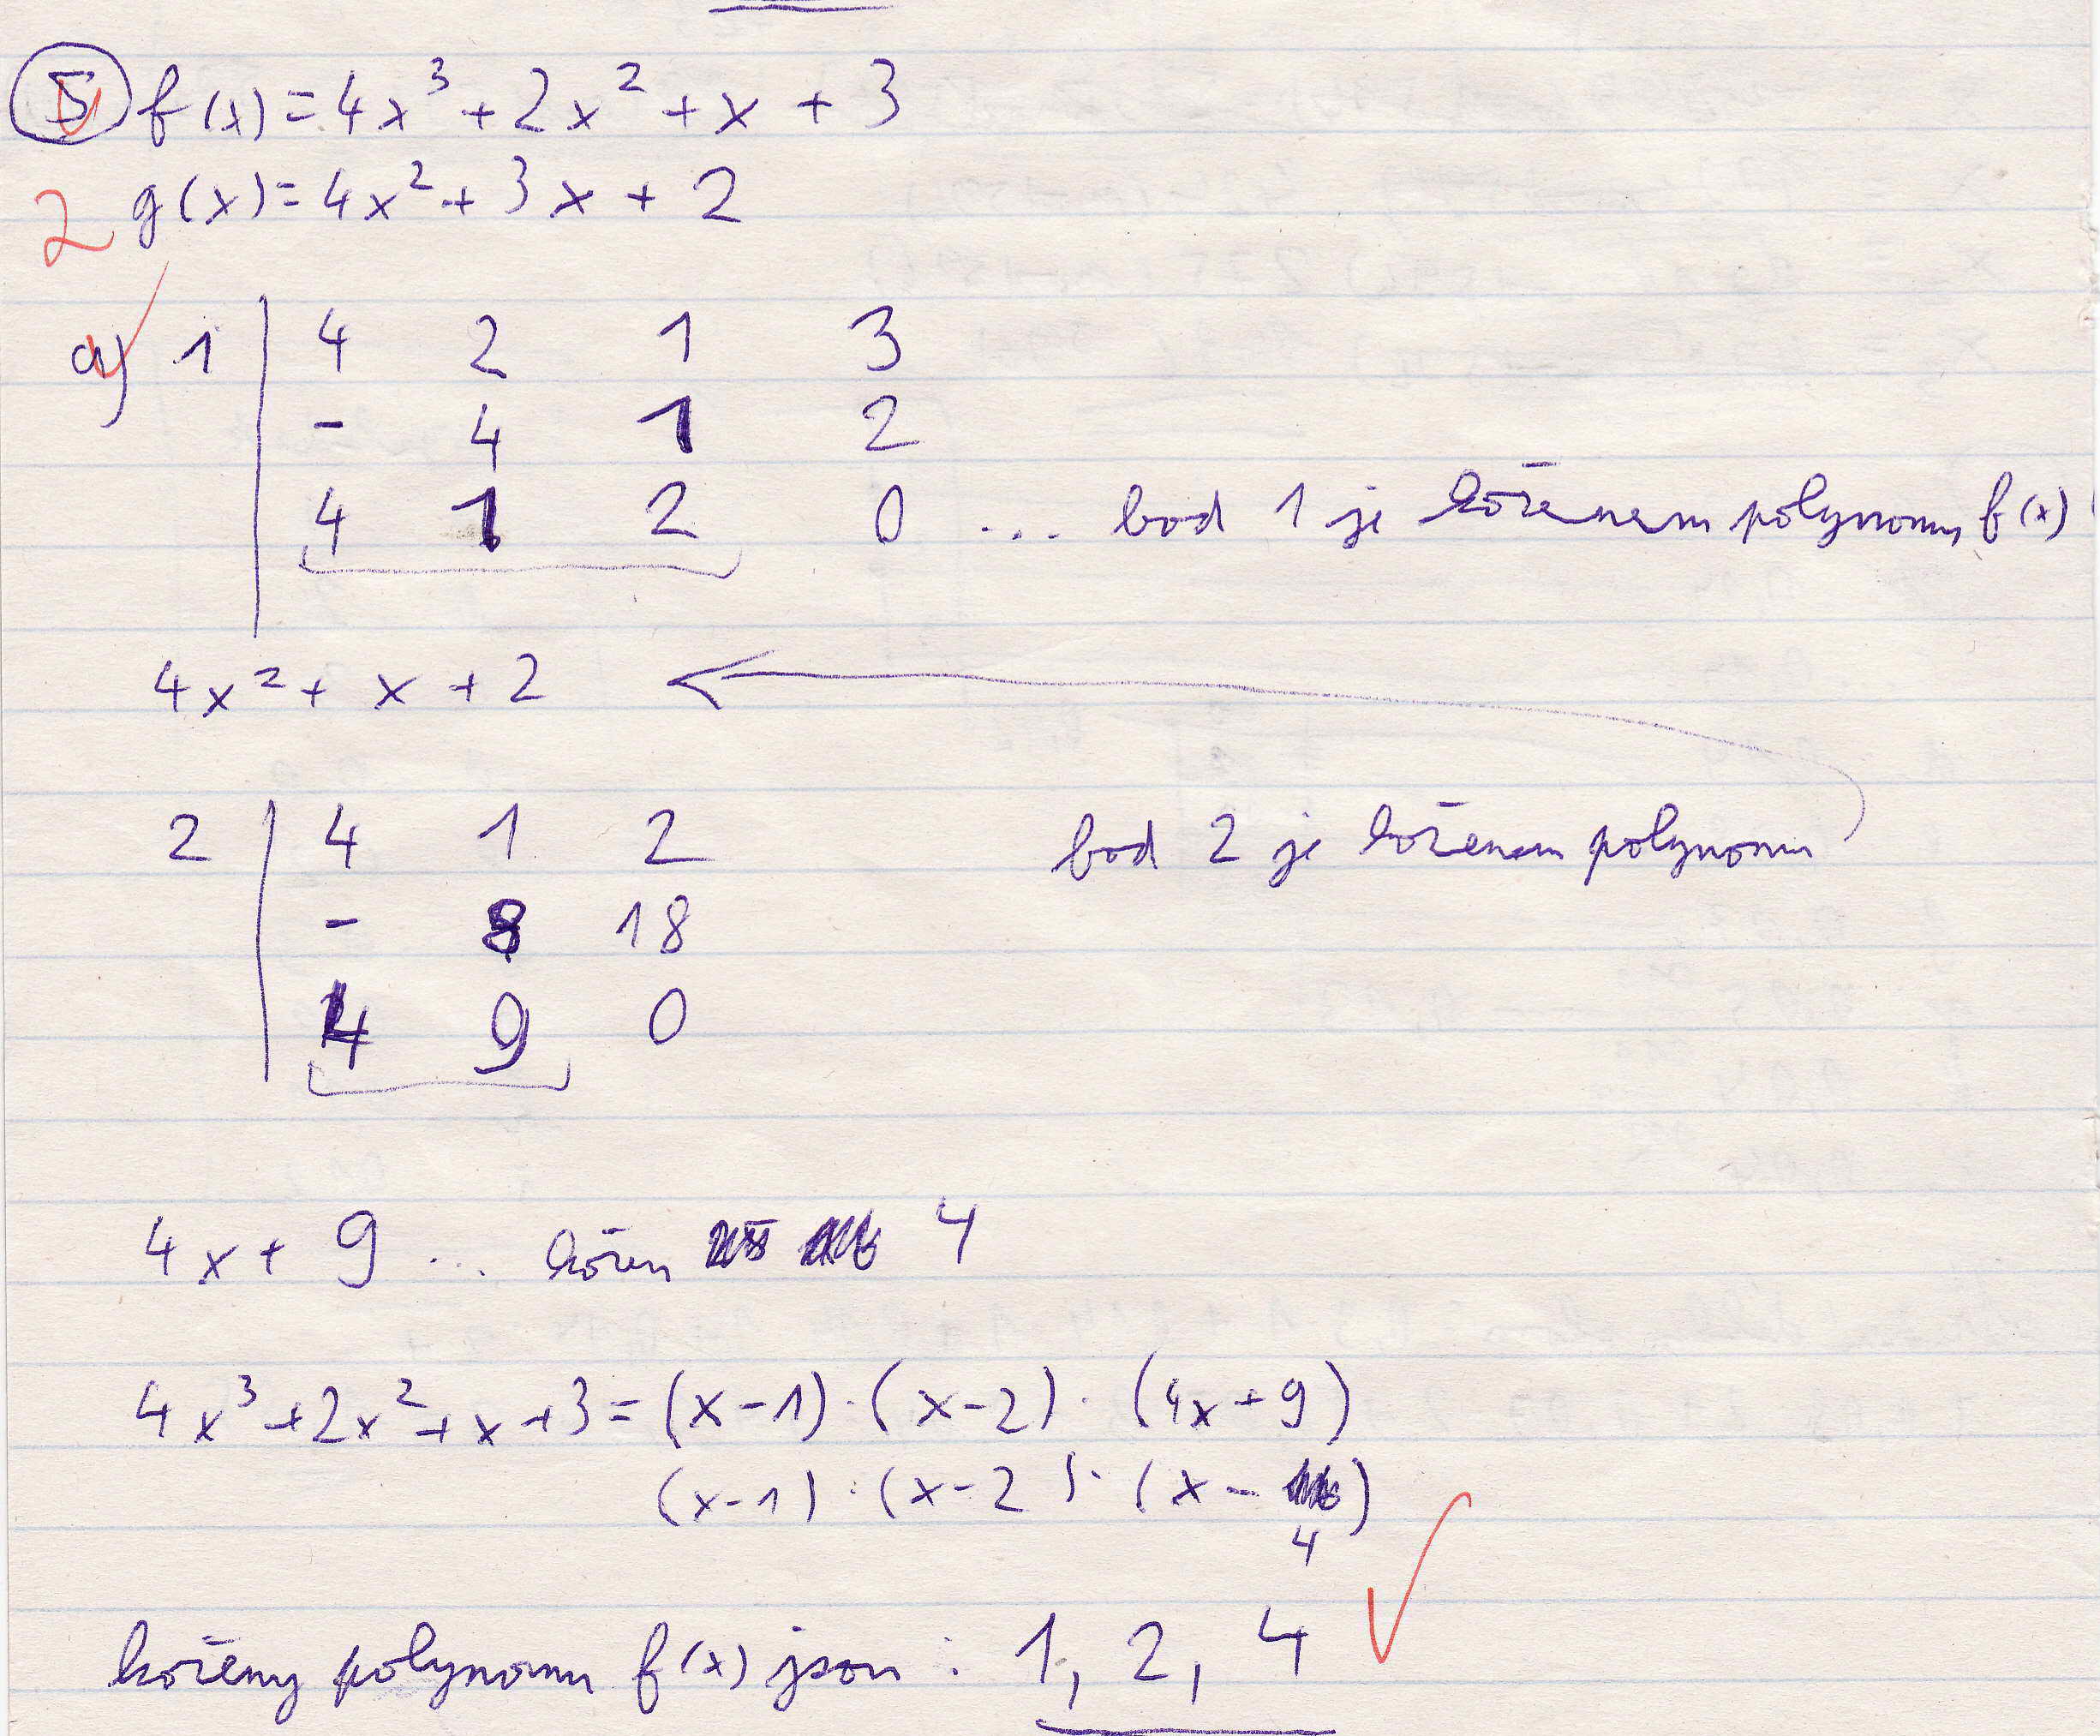 5 f(x) = 4x³ + 2x² + x + 3
2 g(x) = 4x² + 3x + 2
a) 1 | 4 2 1 3
- 4 1 2
4 1 2 0 ... bod 1 je kořenem polynomu f(x)
4x² + x + 2
2 | 4 1 2 bod 2 je kořenem polynomu
- 8 18
4 9 0
4x + 9 ... kořen 4
4x³ + 2x² + x + 3 = (x-1)·(x-2)·(4x+9)
(x-1)·(x-2)·(x- 4)
kořeny polynomu f(x) jsou : 1, 2, 4